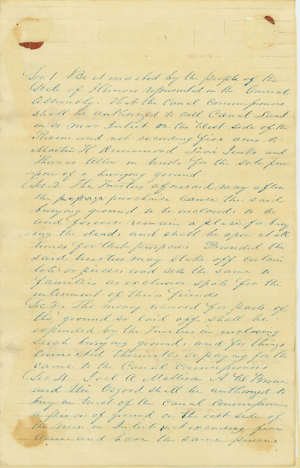 Sec 1 Be it enacted by the people of the
State of Illinois represented in the General
Assembly. That the Canal Commissioners
shall be authorized to sell Canal Land
in or near Juliet on the West side of the
River and not exceeding five acres to
Martin H Demmond
Thomas Allen in trust for the sole pur
pose of a burying ground
Sec 2 The Trustees aforesaid may after
the purchase cause the said
burying ground to be enclosed to be
and forever remain a place for bury
ing the dead, and shall be open at all
times for that purpose Provided the
said trustees may stake off certain
lots or pieces and sell the same to
families as exclusive spots for the
interment of their friends
Sec 3 The money received for parts of
the ground so laid off shall be
expended by the Trustees in enclosing
such burying ground and for things
connected therewith or paying for the
same to the Canal Commissioners
Sec 4 Joel A Matteson
and Osgood shall be authorized to
buy in trust of the Canal Commissioners
a piece of ground on the side of
the River in Juliet not exceeding five
Acres and have the same